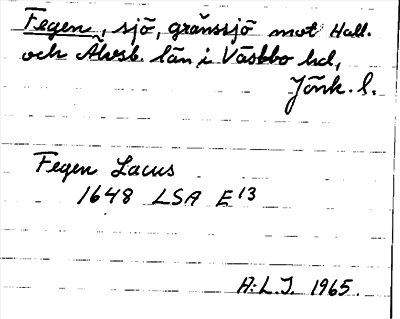 Fegen, sjö, gränssjö mot Hall.
och Älvsb. län i Västbo hd,
Jönk. l.
Fegen Lacus
1648 LSA E 13
A.L.J. 1965.